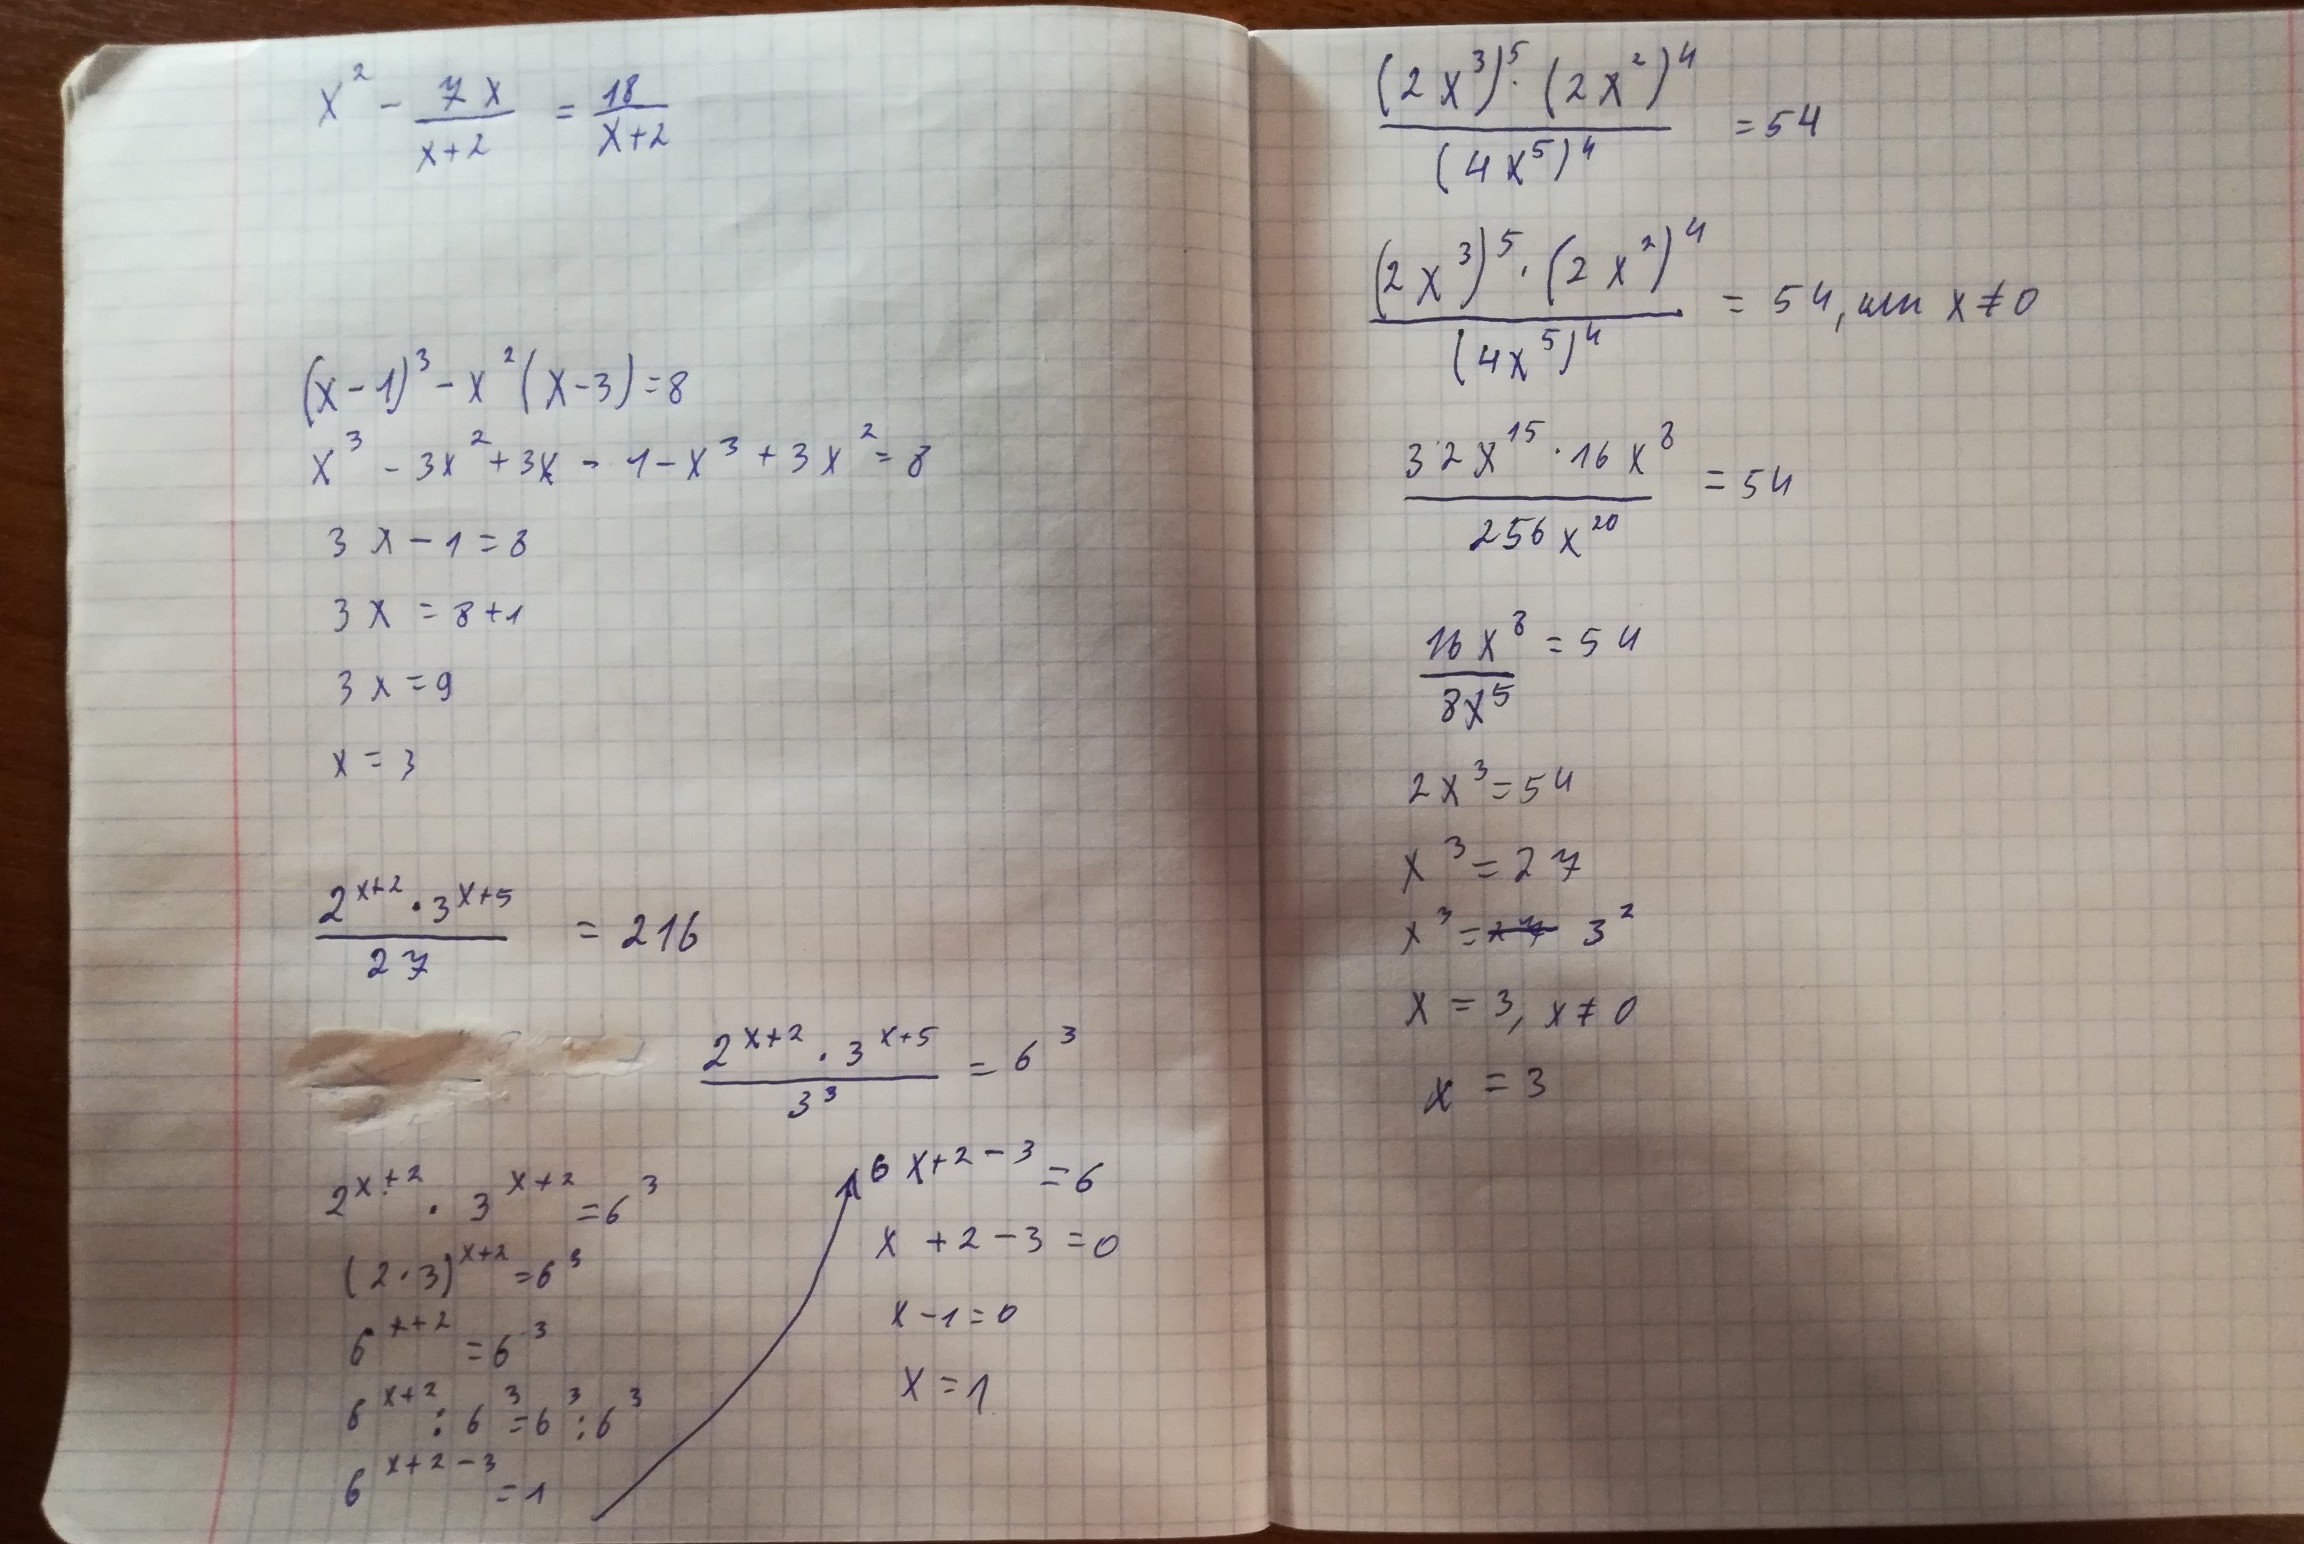 x² - 7x/(x+2) = 18/(x+2)
(x-1)³ - x²(x-3) = 8
x³ - 3x² + 3x - 1 - x³ + 3x² = 8
3x - 1 = 8
3x = 8+1
3x = 9
x = 3
(2^(x+2) · 3^(x+5))/27 = 216
(2^(x+2) · 3^(x+5))/3³ = 6³
2^(x+2) · 3^(x+2) = 6³
(2·3)^(x+2) = 6³
6^(x+2) = 6³
6^(x+2) : 6³ = 6³ : 6³
6^(x+2-3) = 1
6^(x+2-3) = 6
x + 2 - 3 = 0
x - 1 = 0
x = 1
((2x³)⁵ · (2x²)⁴)/(4x⁵)⁴ = 54
((2x³)⁵ · (2x²)⁴)/(4x⁵)⁴ = 54, x ≠ 0
(32x¹⁵ · 16x⁸)/(256x²⁰) = 54
16x⁸/8x⁵ = 54
2x³ = 54
x³ = 27
x³ = 3²
x = 3, x ≠ 0
x = 3